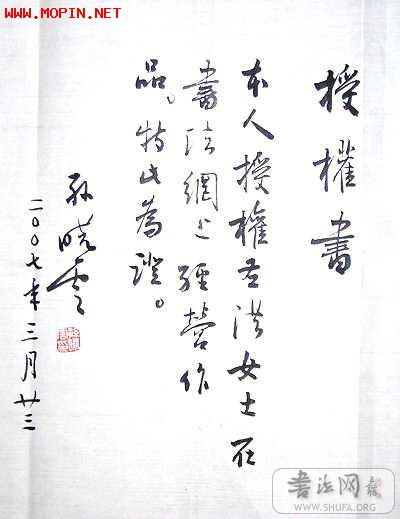 WWW.MOPIN.NET
授權書
本人授權左洪女士在
書法網上經營作
品。特此為證。
孙晓雲
二〇〇七年三月廿三
書法网
WWW.SHUFA.ORG